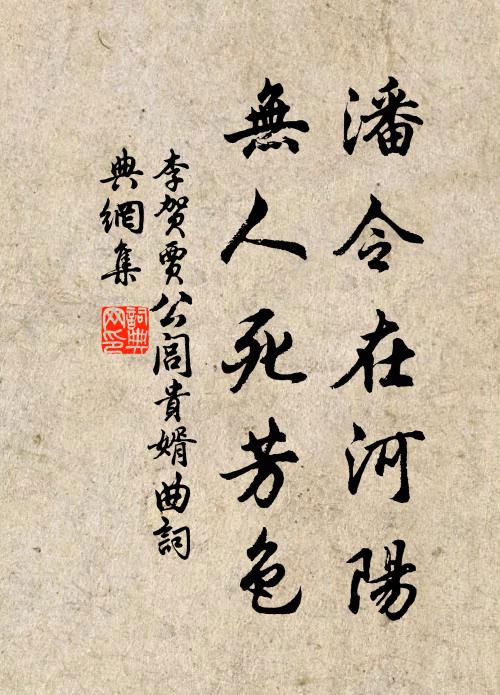 潘令在河陽
無人死芳色
李贺賈公閭貴婿曲詞
典網集
詞典
网印